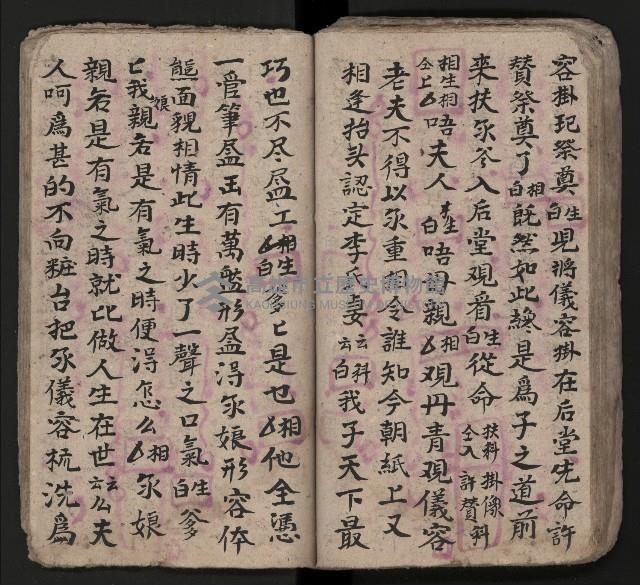 容掛玘祭奠白生兒將儀容掛在后堂先命許
賛祭奠了白相既然如此纔是爲子之道前
來扶永仝入后堂观看白生從命扶科掛像仝入許賛科
相生相仝上白唔夫人白生唔母親白相观丹青观儀容
老夫不得以永重相令誰知今朝紙上又
相逢抬头認定李氏妻云科白我子天下最
巧也不尽盈工相生白爹匕是也白相他全憑
一管筆盈出有萬般形盈得永娘形容体
態面貌相情此生時少了一聲之口氣白生爹
匕我娘親若是有氣之時便得怎么白相永娘
親若是有氣之時就比做人生在世云么夫
人呵爲甚的不向粧台把永儀容梳洗爲
高雄市立歷史博物館
KAOHSIUNG MUSEUM OF HISTORY